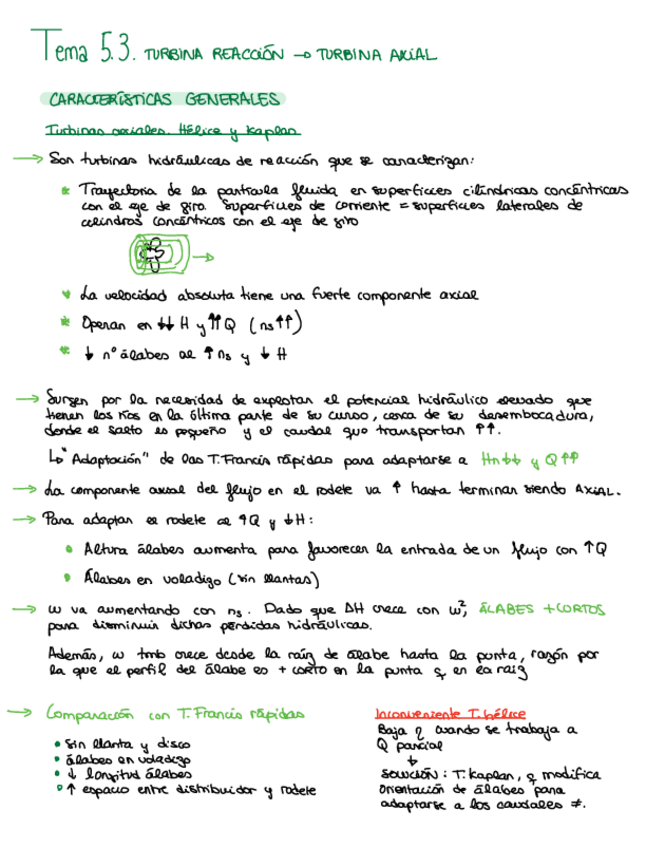 Tema 5.3. TURBINA REACCIÓN → TURBINA AXIAL
CARACTERÍSTICAS GENERALES
Turbinas axiales. Hélice y Kaplan
→ Son turbinas hidráulicas de reacción que se caracterizan:
* Trayectoria de la partícula fluida en superficies cilíndricas concéntricas
con el eje de giro. Superficies de corriente = superficies laterales de
cilindros concéntricos con el eje de giro
* La velocidad absoluta tiene una fuerte componente axial
* Operan en ↓↓ H y ⇈ Q (ns ↑↑)
* ↓ nº álabes al ↑ ns y ↓ H
→ Surgen por la necesidad de explotar el potencial hidráulico elevado que
tienen los ríos en la última parte de su curso, cerca de su desembocadura,
donde el salto es pequeño y el caudal que transportan ↑↑.
↳ "Adaptación" de las T. Francis rápidas para adaptarse a Hn ↓↓ y Q ↑↑
→ La componente axial del flujo en el rodete va ↑ hasta terminar siendo AXIAL.
→ Para adaptar el rodete al ↑Q y ↓H:
• Altura álabes aumenta para favorecer la entrada de un flujo con ↑Q
• Álabes en voladigo (sin llantas)
→ w va aumentando con ns. Dado que ΔH crece con w², ÁLABES + CORTOS
para disminuir dichas pérdidas hidráulicas.
Además, w tmb crece desde la raíz de álabe hasta la punta, razón por
la que el perfil del álabe es + corto en la punta q en la raíz
→ Comparación con T. Francis rápidas
• Sin llanta y disco
• álabes en voladigo
• ↓ longitud álabes
• ↑ espacio entre distribuidor y rodete
Inconveniente T. hélice
Baja η cuando se trabaja a
Q parcial
↓
SOLUCIÓN: T. Kaplan, q modifica
orientación de álabes para
adaptarse a los caudales ≠.